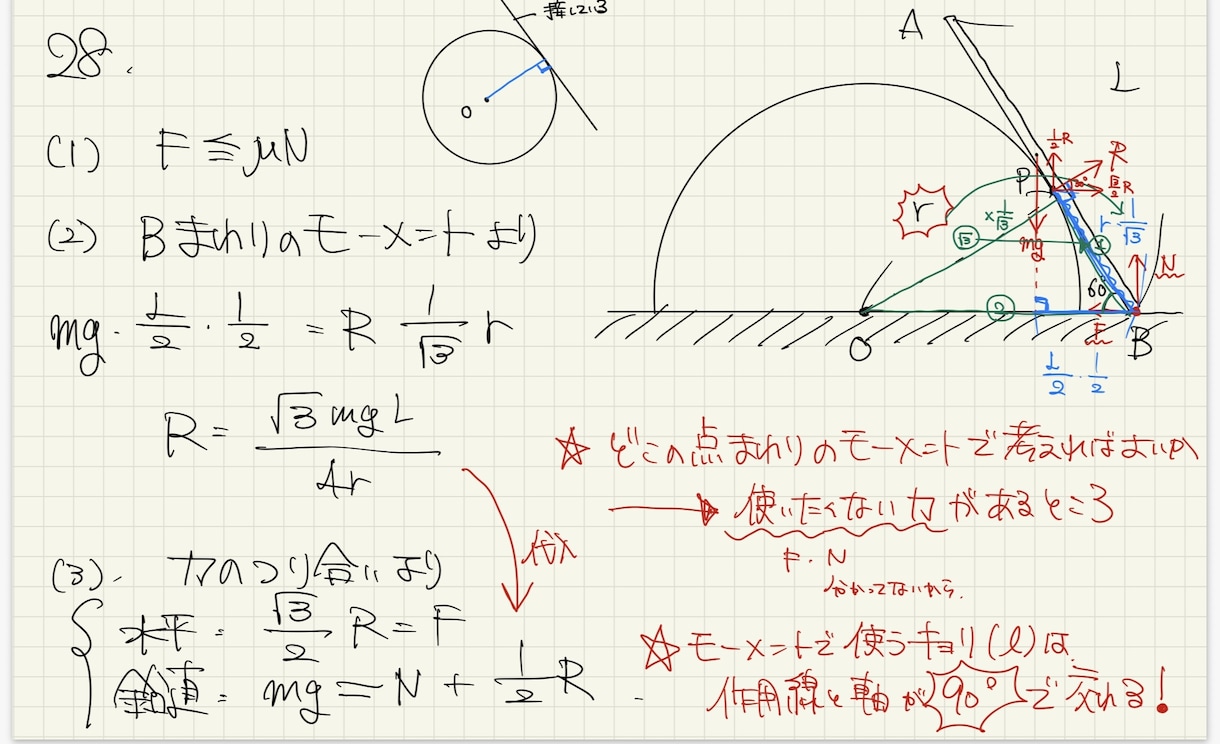 28.
接している
O
(1) F≦μN
(2) Bまわりのモーメントより
mg・L/2・1/2 = R 1/√3 r
R= √3mgL/4r
代入
(3). 力のつり合いより
水平: √3/2 R=F
鉛直: mg=N+1/2R.
A
L
P
1/2R
R
30°
√3/2R
r
×1/√3
r・1/√3
√3
mg
1
60°
N
2
F
O
B
L/2・1/2
☆どこの点まわりのモーメントで考えればよいか
→使いたくない力があるところ
F・N
分かってないから.
☆モーメントで使うキョリ(l)は、
作用線と軸が90°で交わる!